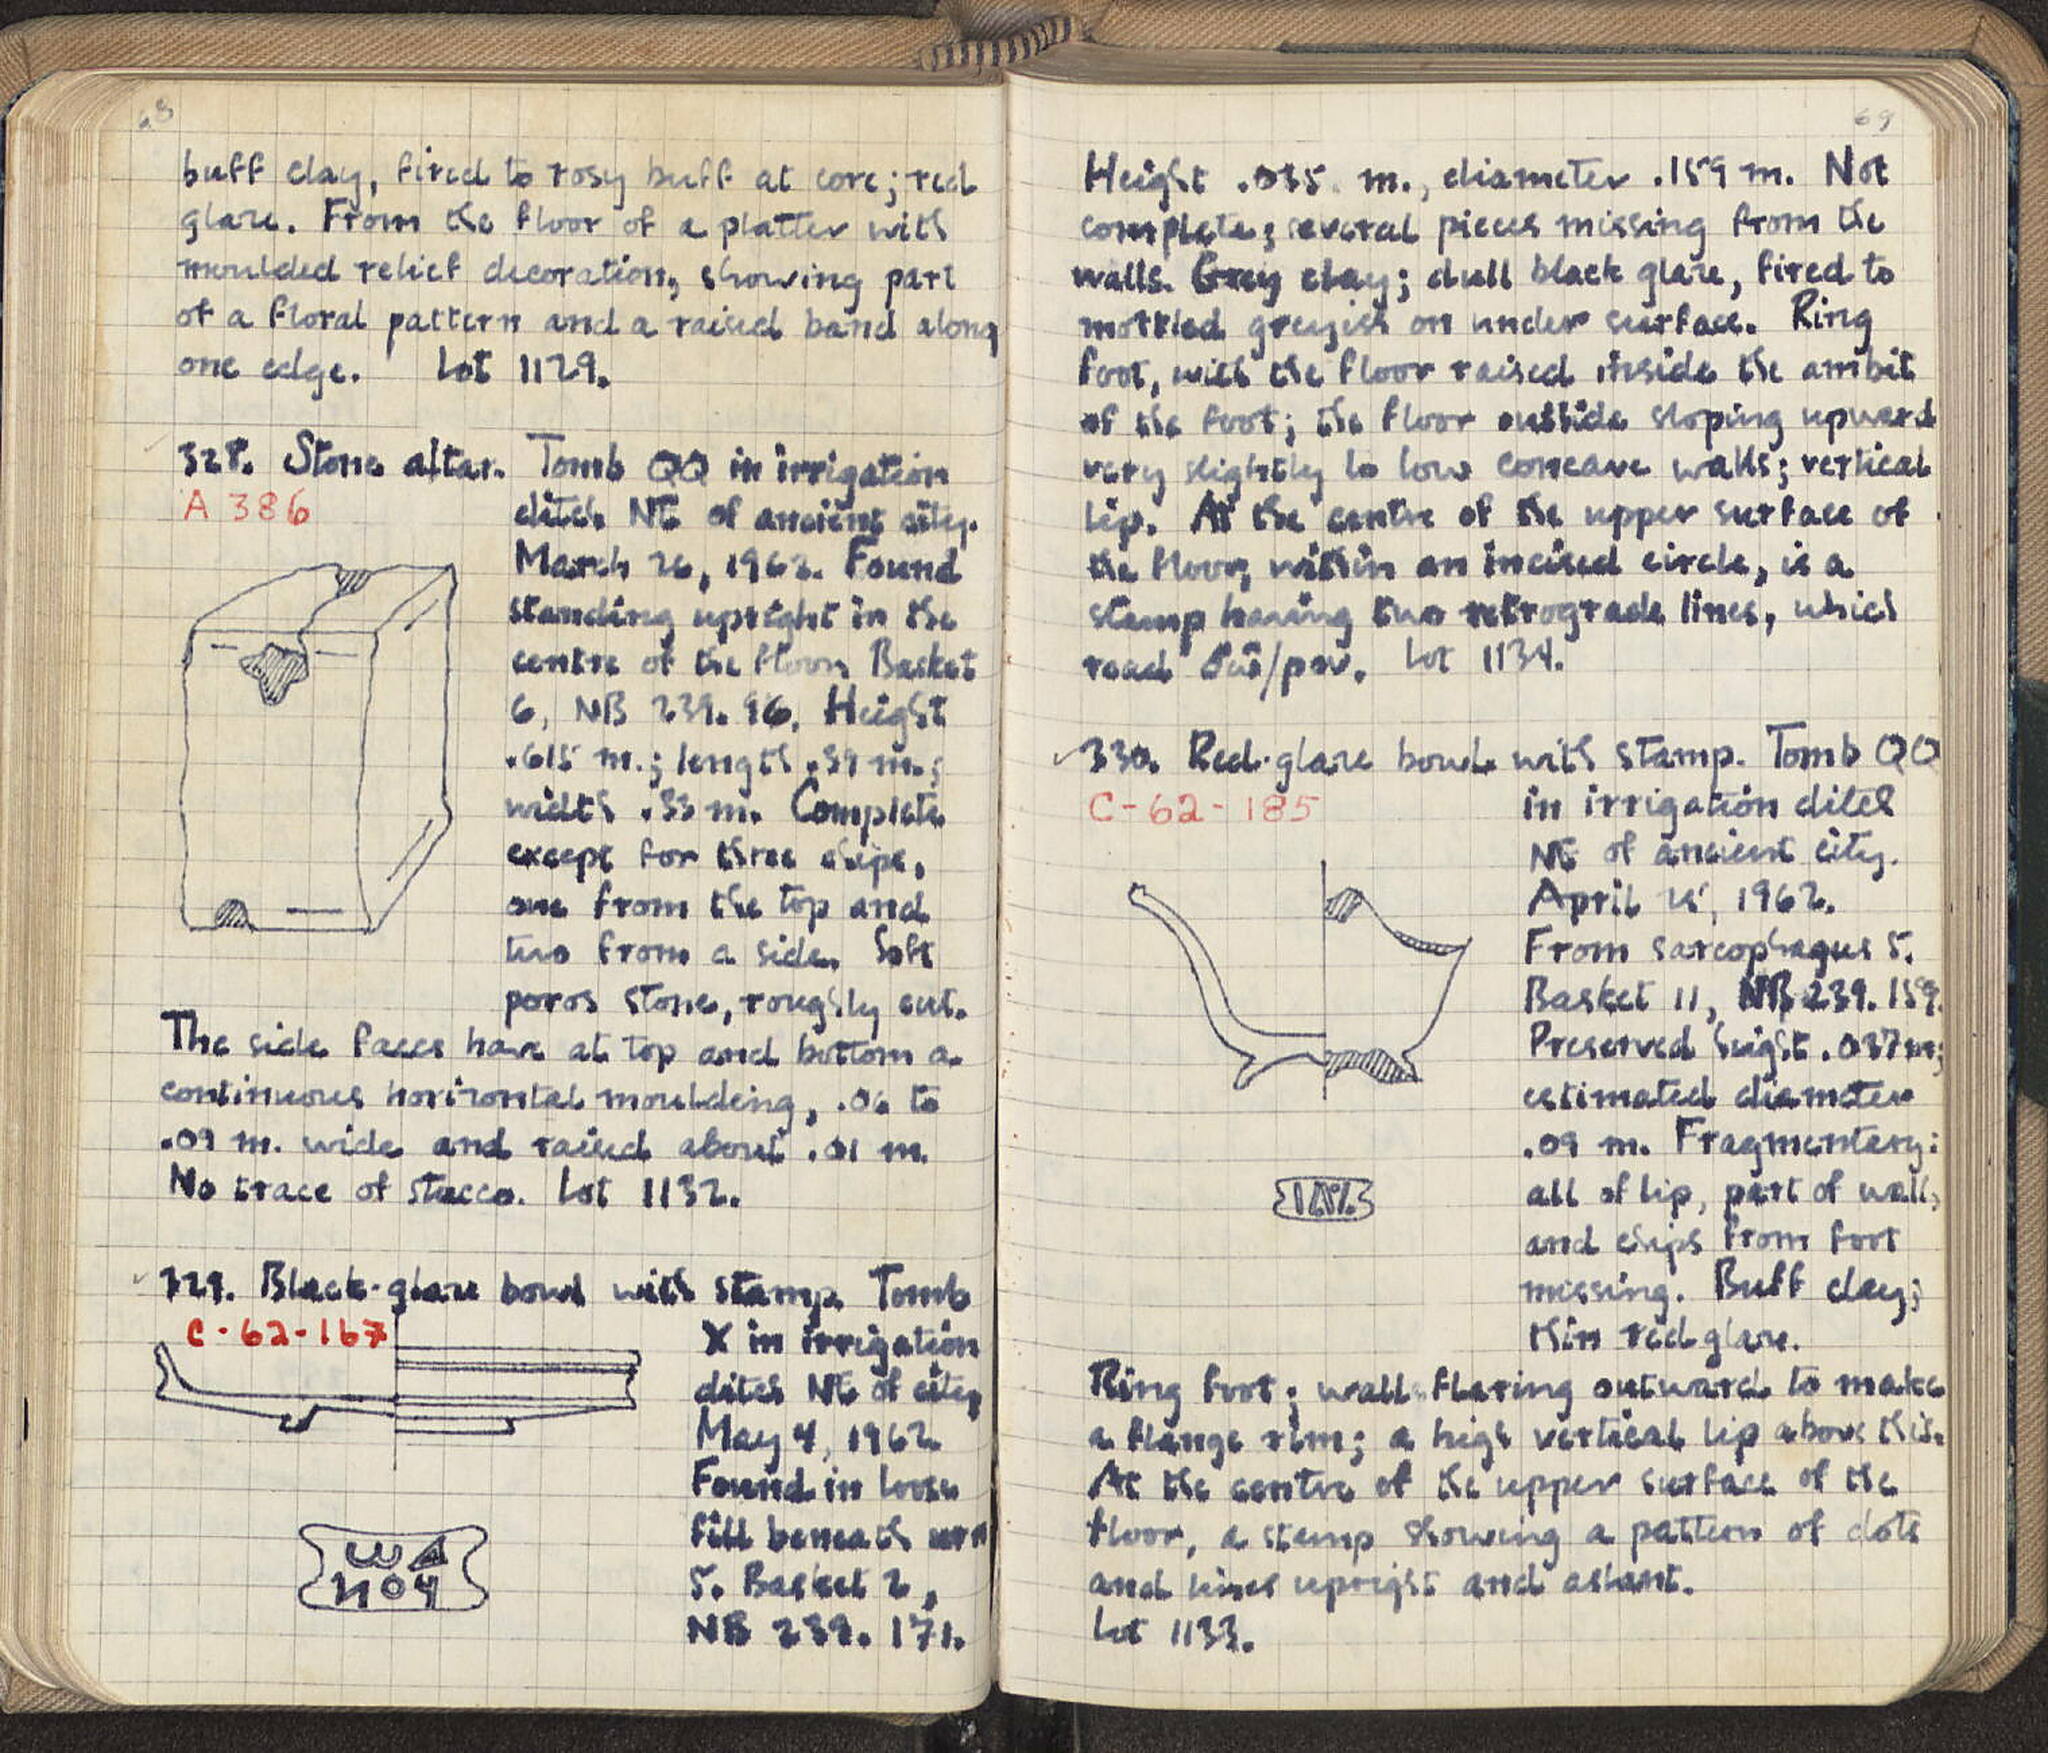 68
buff clay, fired to rosy buff at core; red
glaze. From the floor of a platter with
moulded relief decoration, showing part
of a floral pattern and a raised band along
one edge. Lot 1129.
328. Stone altar. Tomb QQ in irrigation
A 386
ditch NE of ancient city.
March 26, 1962. Found
standing upright in the
centre of the floor. Basket
6, NB 239. 96. Height
.615 m.; length .39 m.;
width .33 m. Complete
except for three chips,
one from the top and
two from a side. Soft
poros stone, roughly cut.
The side faces have at top and bottom a
continuous horizontal moulding, .06 to
.09 m. wide and raised about .01 m.
No trace of stucco. Lot 1132.
329. Black-glaze bowl with stamp. Tomb
C-62-167
X in irrigation
ditch NE of city
May 4, 1962
Found in loose
fill beneath urn
5. Basket 2,
NB 239. 171.
69
Height .035 m., diameter .159 m. Not
complete; several pieces missing from the
walls. Grey clay; dull black glaze, fired to
mottled greyish on under surface. Ring
foot, with the floor raised inside the ambit
of the foot; the floor outside sloping upward
very slightly to low concave walls; vertical
lip. At the centre of the upper surface of
the floor, within an incised circle, is a
stamp having two retrograde lines, which
read Lot 1134.
330. Red-glaze bowl with stamp. Tomb QQ
C-62-185
in irrigation ditch
NE of ancient city.
April 25, 1962.
From sarcophagus 5.
Basket 11, NB 239. 159.
Preserved height .037 m;
estimated diameter
.09 m. Fragmentary:
all of lip, part of wall,
and chips from foot
missing. Buff clay;
thin red glaze.
Ring foot; walls flaring outward to make
a flange rim; a high vertical lip above this.
At the centre of the upper surface of the
floor, a stamp showing a pattern of dots
and lines upright and aslant.
Lot 1133.